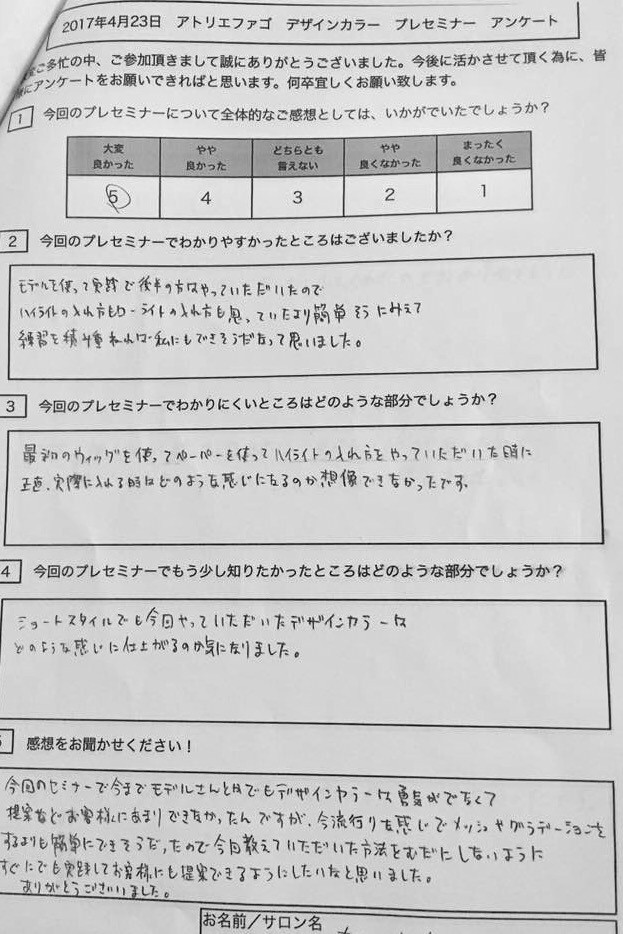 2017年4月23日 アトリエファゴ デザインカラー プレセミナー アンケート
ご多忙の中、ご参加頂きまして誠にありがとうございました。今後に活かさせて頂く為に、皆
にアンケートをお願いできればと思います。何卒宜しくお願い致します。
1 今回のプレセミナーについて全体的なご感想としては、いかがでいたでしょうか？
大変良かった やや良かった どちらとも言えない やや良くなかった まったく良くなかった
5 4 3 2 1
2 今回のプレセミナーでわかりやすかったところはございましたか？
モデルを使って実践で後半の方はやっていただいたので
ハイライトの入れ方もローライトの入れ方も思っていたより簡単そうにみえて
練習を積み重ねれば私にもできそうだなって思いました。
3 今回のプレセミナーでわかりにくいところはどのような部分でしょうか？
最初のウィッグを使ってペーパーを使ってハイライトの入れ方をやっていただいた時に
正直、実際に入れる時はどのような感じになるのか想像できなかったです。
4 今回のプレセミナーでもう少し知りたかったところはどのような部分でしょうか？
ショートスタイルでも今回やっていただいたデザインカラーは
どのような感じに仕上がるのか気になりました。
感想をお聞かせください！
今回のセミナーで今までモデルさんとかでもデザインカラーは勇気がでなくて
提案などお客様にあまりできなかったんですが、今流行りな感じでメッシュやグラデーションを
するよりも簡単にできそうだったので今回教えていただいた方法をむだにしないように
すぐにでも実践してお客様にも提案できるようにしたいなと思いました。
ありがとうございました。
お名前／サロン名